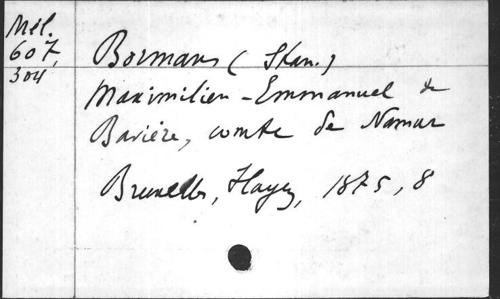 Mél.
607,
304
Bormans (Stan.)
Maximilien-Emmanuel de
Bavière, comte de Namur
Bruxelles, Hayez, 1875, 8